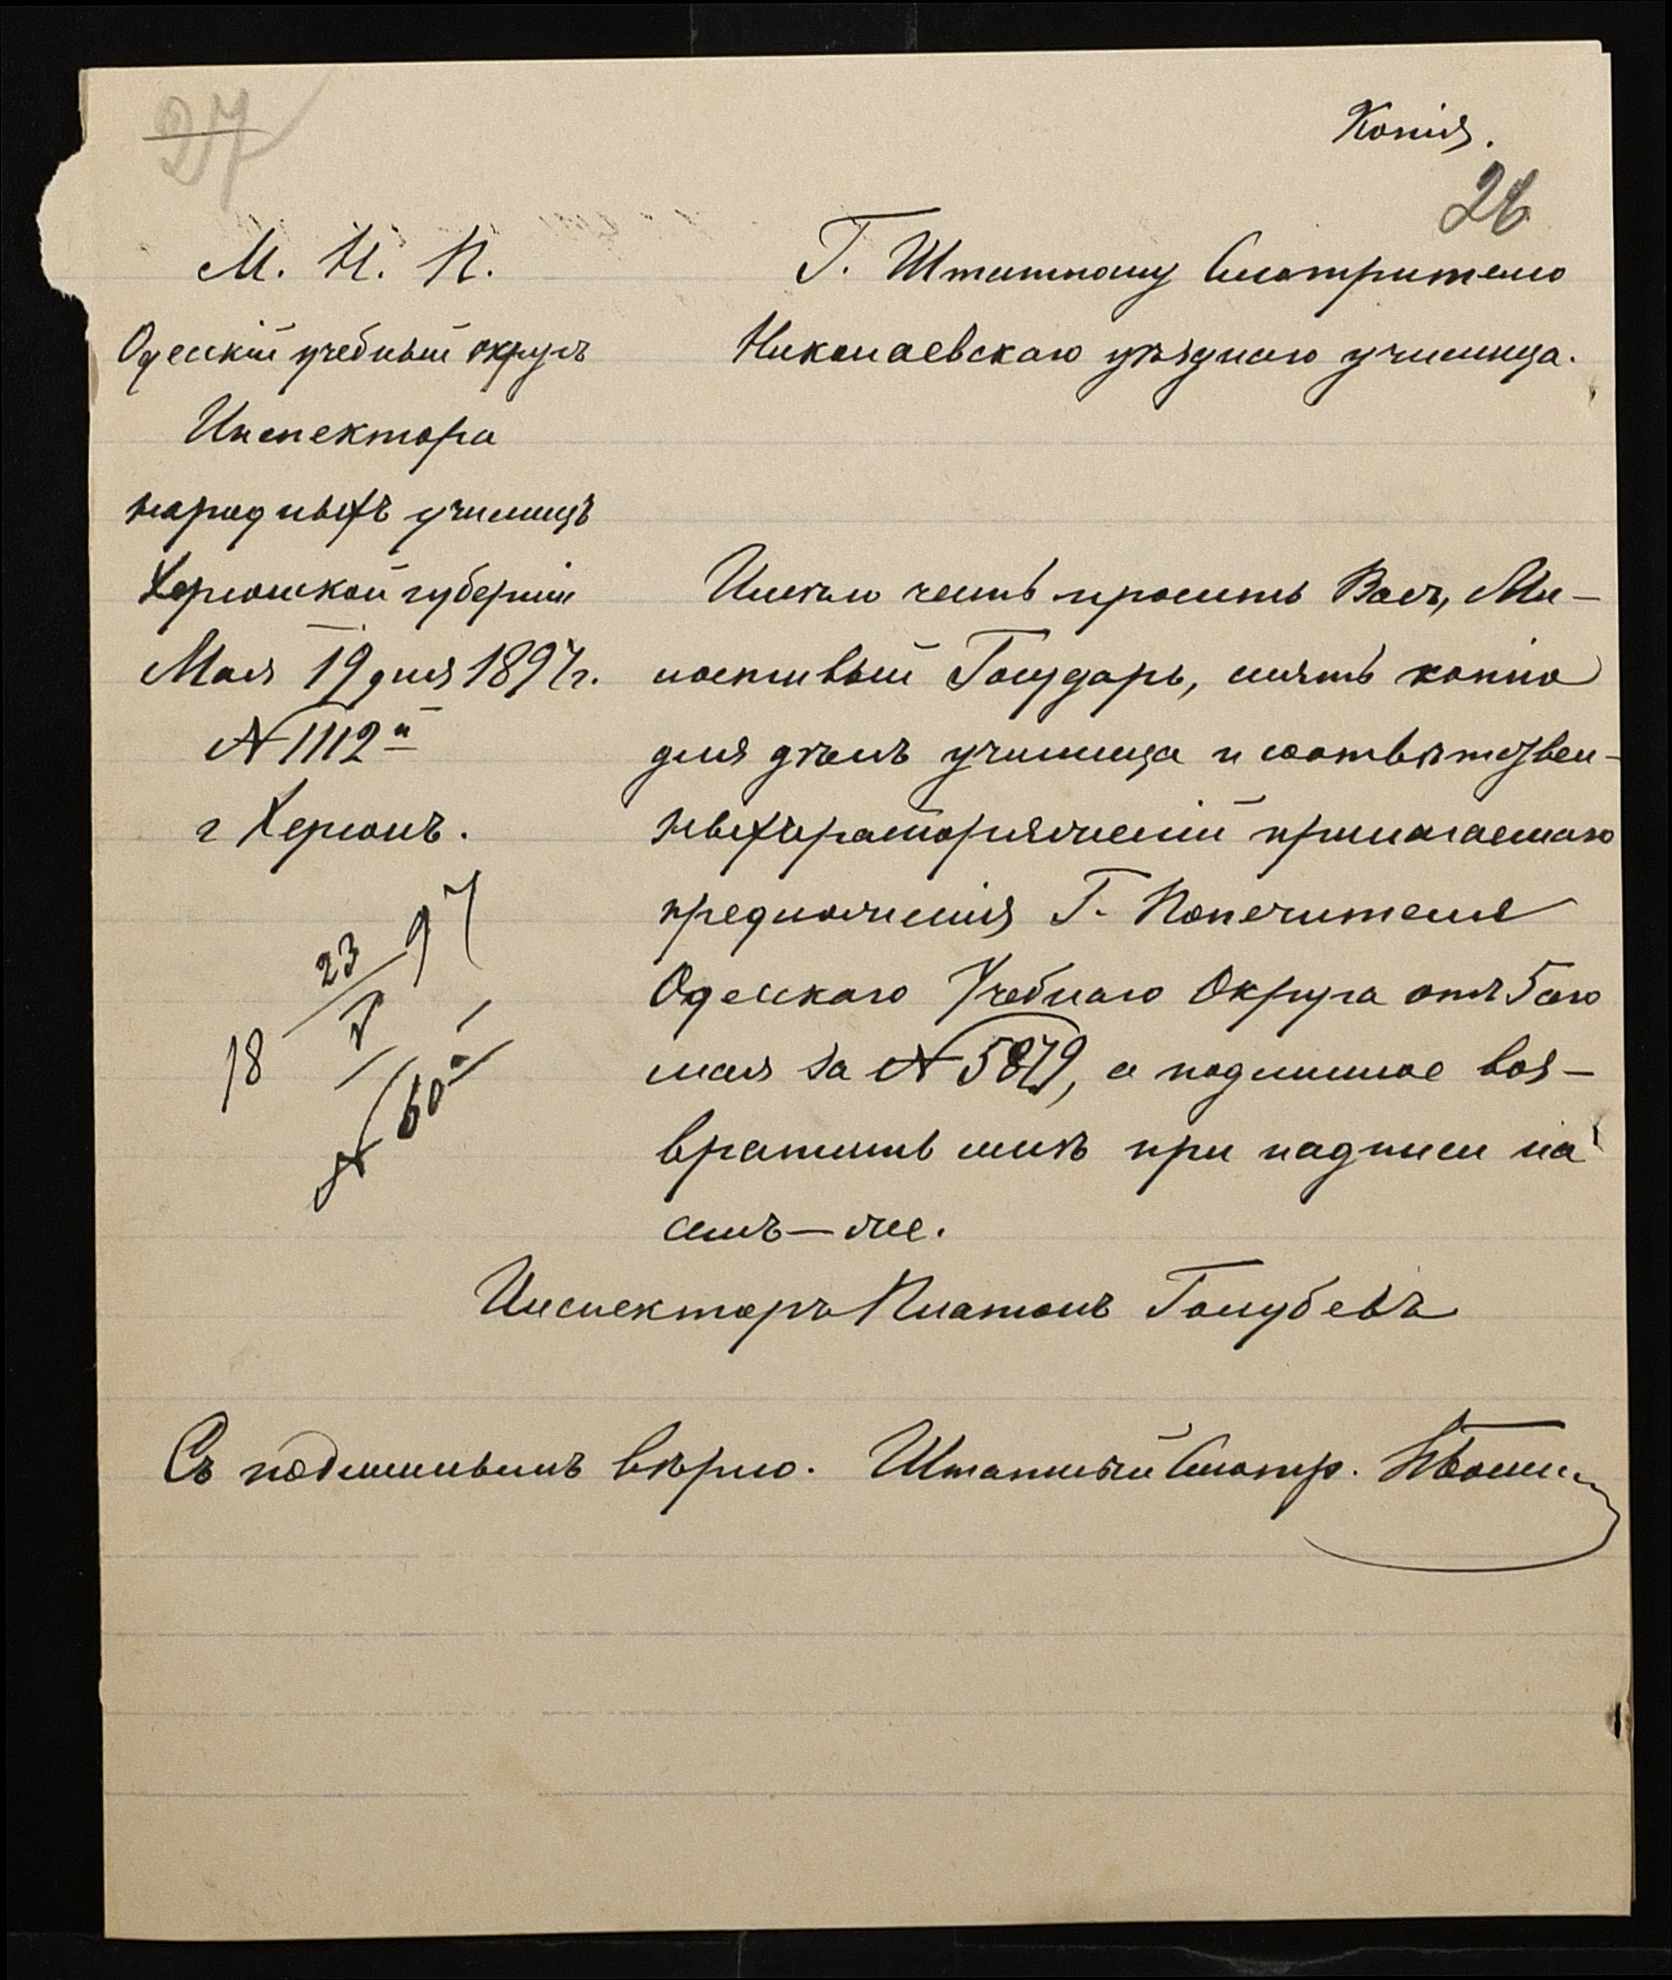 27
Копія.
26
М. Н. П.
Одесскій учебный округъ
Инспектора
народныхъ училищъ
Херсонской губерніи
Мая 19 дня 1897 г.
№ 1112й
г Херсонъ.
18 23/V 97
№ 60
Г. Штатному Смотрителю
Николаевскаго уѣзднаго училища.
Имѣю честь просить Васъ, Ми-
лостивый Государь, снять копію
для дѣлъ училища и соотвѣтствен-
ныхъ распоряженій прилагаемаго
предложенія Г. Попечителя
Одесскаго Учебнаго Округа отъ 5аго
мая за № 5879, а подлинное воз-
вратить мнѣ при надписи на
семъ-же.
Инспекторъ Платонъ Голубевъ
Съ подлиннымъ вѣрно. Штатный Смотр.